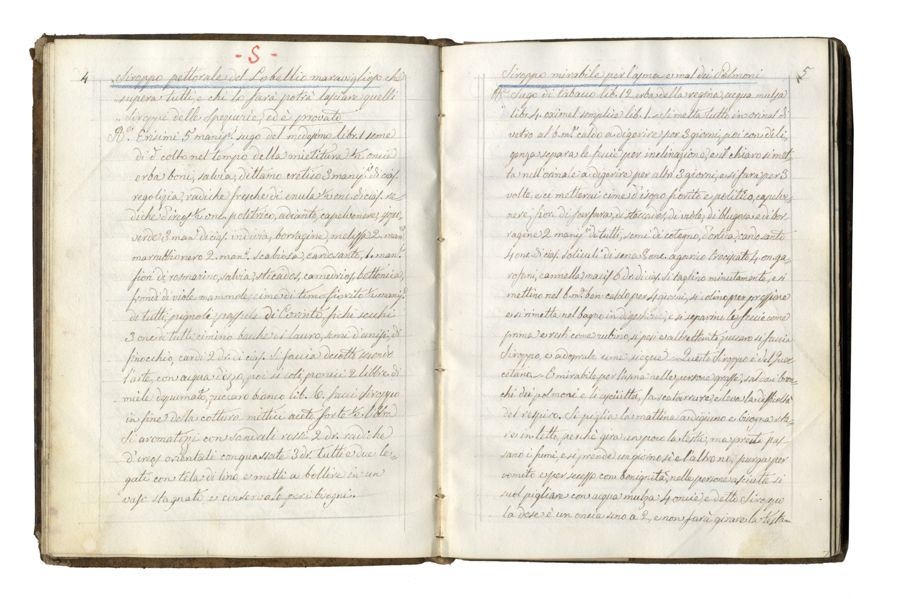 - S -
4
Siroppo pettorale del Lobellio maraviglioso che
supera tutti, e chi lo farà potrà lasciare quelli
siroppi delle Speciarie, ed è provato
Erisimi 5 manip. sugo del medesimo lib. 1 seme
di d.° colto nel tempo della mietitura ½ oncie
erba boni, salvia, dittamo cretico 3 manip. di cias.
regolizia, radiche fresche di enula ½ on. di cias. ra-
diche d'ireos ½ onc. politrico, adianto, capelvenere,
verde 3 man. di cias. indivia, borragine, melissa 2. man.
marrubio nero 2. man. scabiosa, cardo santo, 1. man.
fiori di rosmarino, salvia, sticados, camedrios, bettonica,
frondi di viole mammole, cime di timo fiorito ½ manip.
di tutti, pignoli passule di Corinto, fichi secchi
3 onc. di tutti cimino bacche di lauro, semi d'anisi, di
finocchio, cardi 2 dr. di cias. si faccia decotto secondo
l'arte, con acqua d'izopo, poi si coli, poneci 2 libbre di
miele dispumato, zuccaro bianco lib. 6. facci siroppo
in fine della cottura mettici aceto forte ½ libbra
Si aromatizi con sandali rossi 2 dr. radiche
d'ireos orientali conquassate 3 dr. tutti e due le-
gati con tela di lino e metti a bollire in un
vaso stagnato e conservalo per i bisogni.
5
Siroppo mirabile per l'asma e mal dei Polmoni
Sugo di tabacco lib. 12 erba della regina, acqua mulsa
lib. 4. oximel semplice lib. 1. si metta tutto in orinal di
vetro al b. m. caldo a digerire per 3 giorni, poi con dili-
genza separa le feccie per inclinazione, e il chiaro si met-
ta nell'orinale a digerire per altri 3 giorni, e si farà per 3
volte, e ci metterai cime d'isopo fiorite e politrico, capelve-
nere, fiori di farfara, di sticados, di viole, di buglosa e di bor-
ragine 2 manip. di tutti, semi di cotogno, d'ortica, cardo santo
4 onc. di cias. folicoli di sena onc. agarico trociscato 4 on. ga-
rofani, cannella macis 6 dr. di cias. si taglino minutamente, e si
mettino nel b. m. ben caldo per 4 giorni, si colino per pressione
e si rimetta nel bagno in digestione, e si separino le feccie come
prima e resti come rubino, si pesi e altrettanto zuccaro si faccia
Siroppo, e adoprale come siegue. Questo Siroppo è del Quer-
cetano. È mirabile per l'asma nelle persone grasse, sana i bron-
chi dei polmoni e li
del respiro. Si piglia la mattina a digiuno e bisogna sta-
rsi in letto, perchè gira un poco la testa, ma presto pas-
sano i fumi, e si prende un giorno sì e l'altro nò, purga per
vomito e per secesso con benignità, nelle persone asciutte si
suol pigliare con acqua mulsa 4 oncie, e detto Siroppo
la dose è un oncia sino a 2, e non farà girare la testa